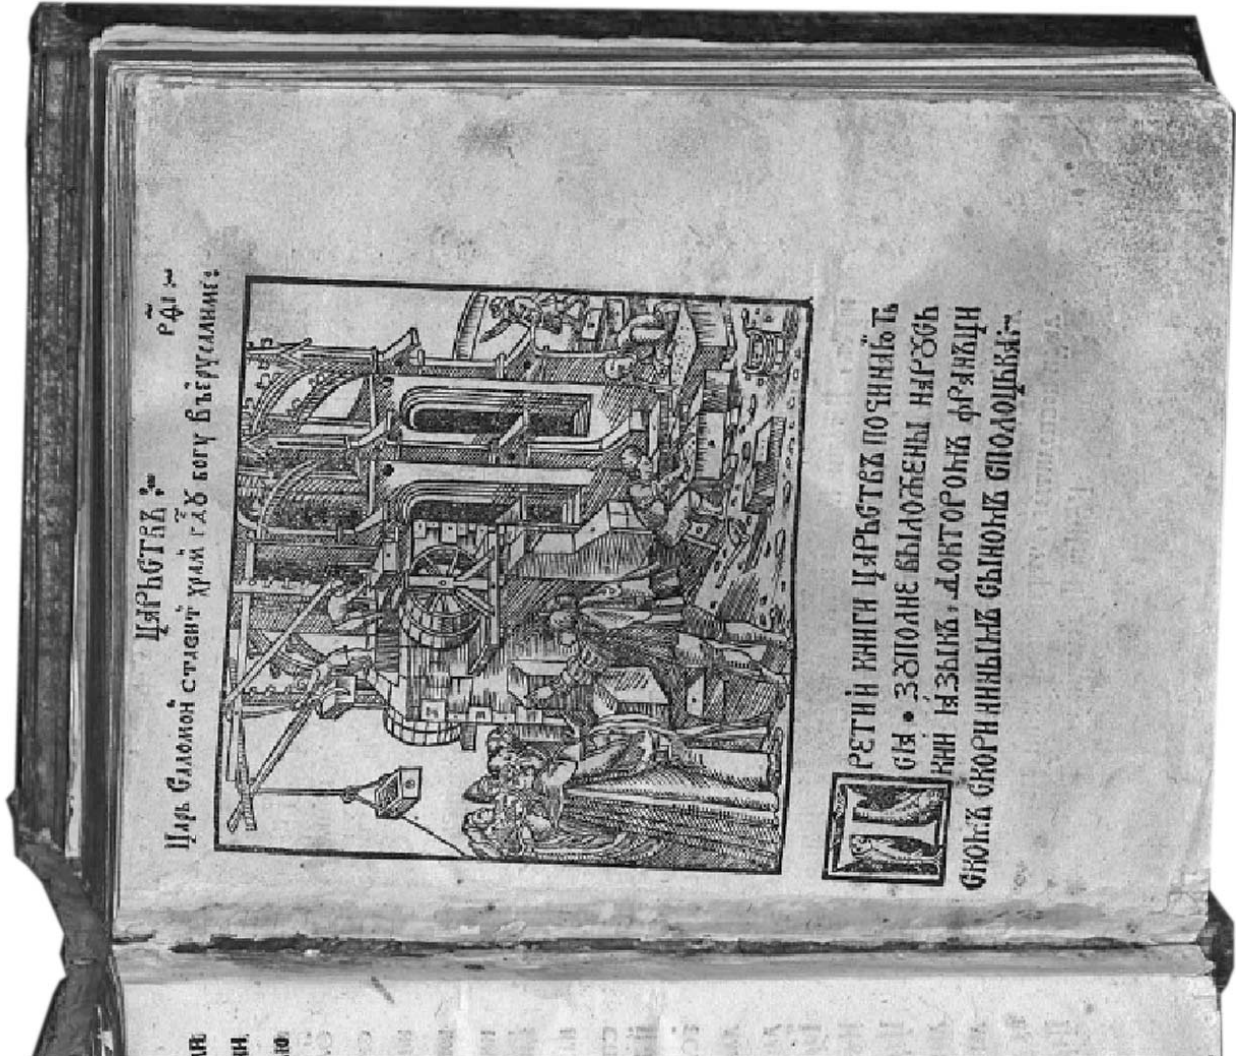 ЦАРЬСТВЪ :~ РД҃І :~
Царь Саломон ставит храм гд҃ꙋ богу въерусалиме :
ТРЕТИИ КНИГИ ЦАРЬСТВЪ ПОЧИНАЮТЬ
СІЯ • ЗꙊПОЛНЕ ВЫЛОЖЕНЫ НАРꙊСЬ
КИИ ІАЗЫКЪ, ДОКТОРОМЪ ФРАНЦИ
СКОМЪ СКОРИНИНЫМЪ СЫНОМЪ СПОЛОЦЬКА :~